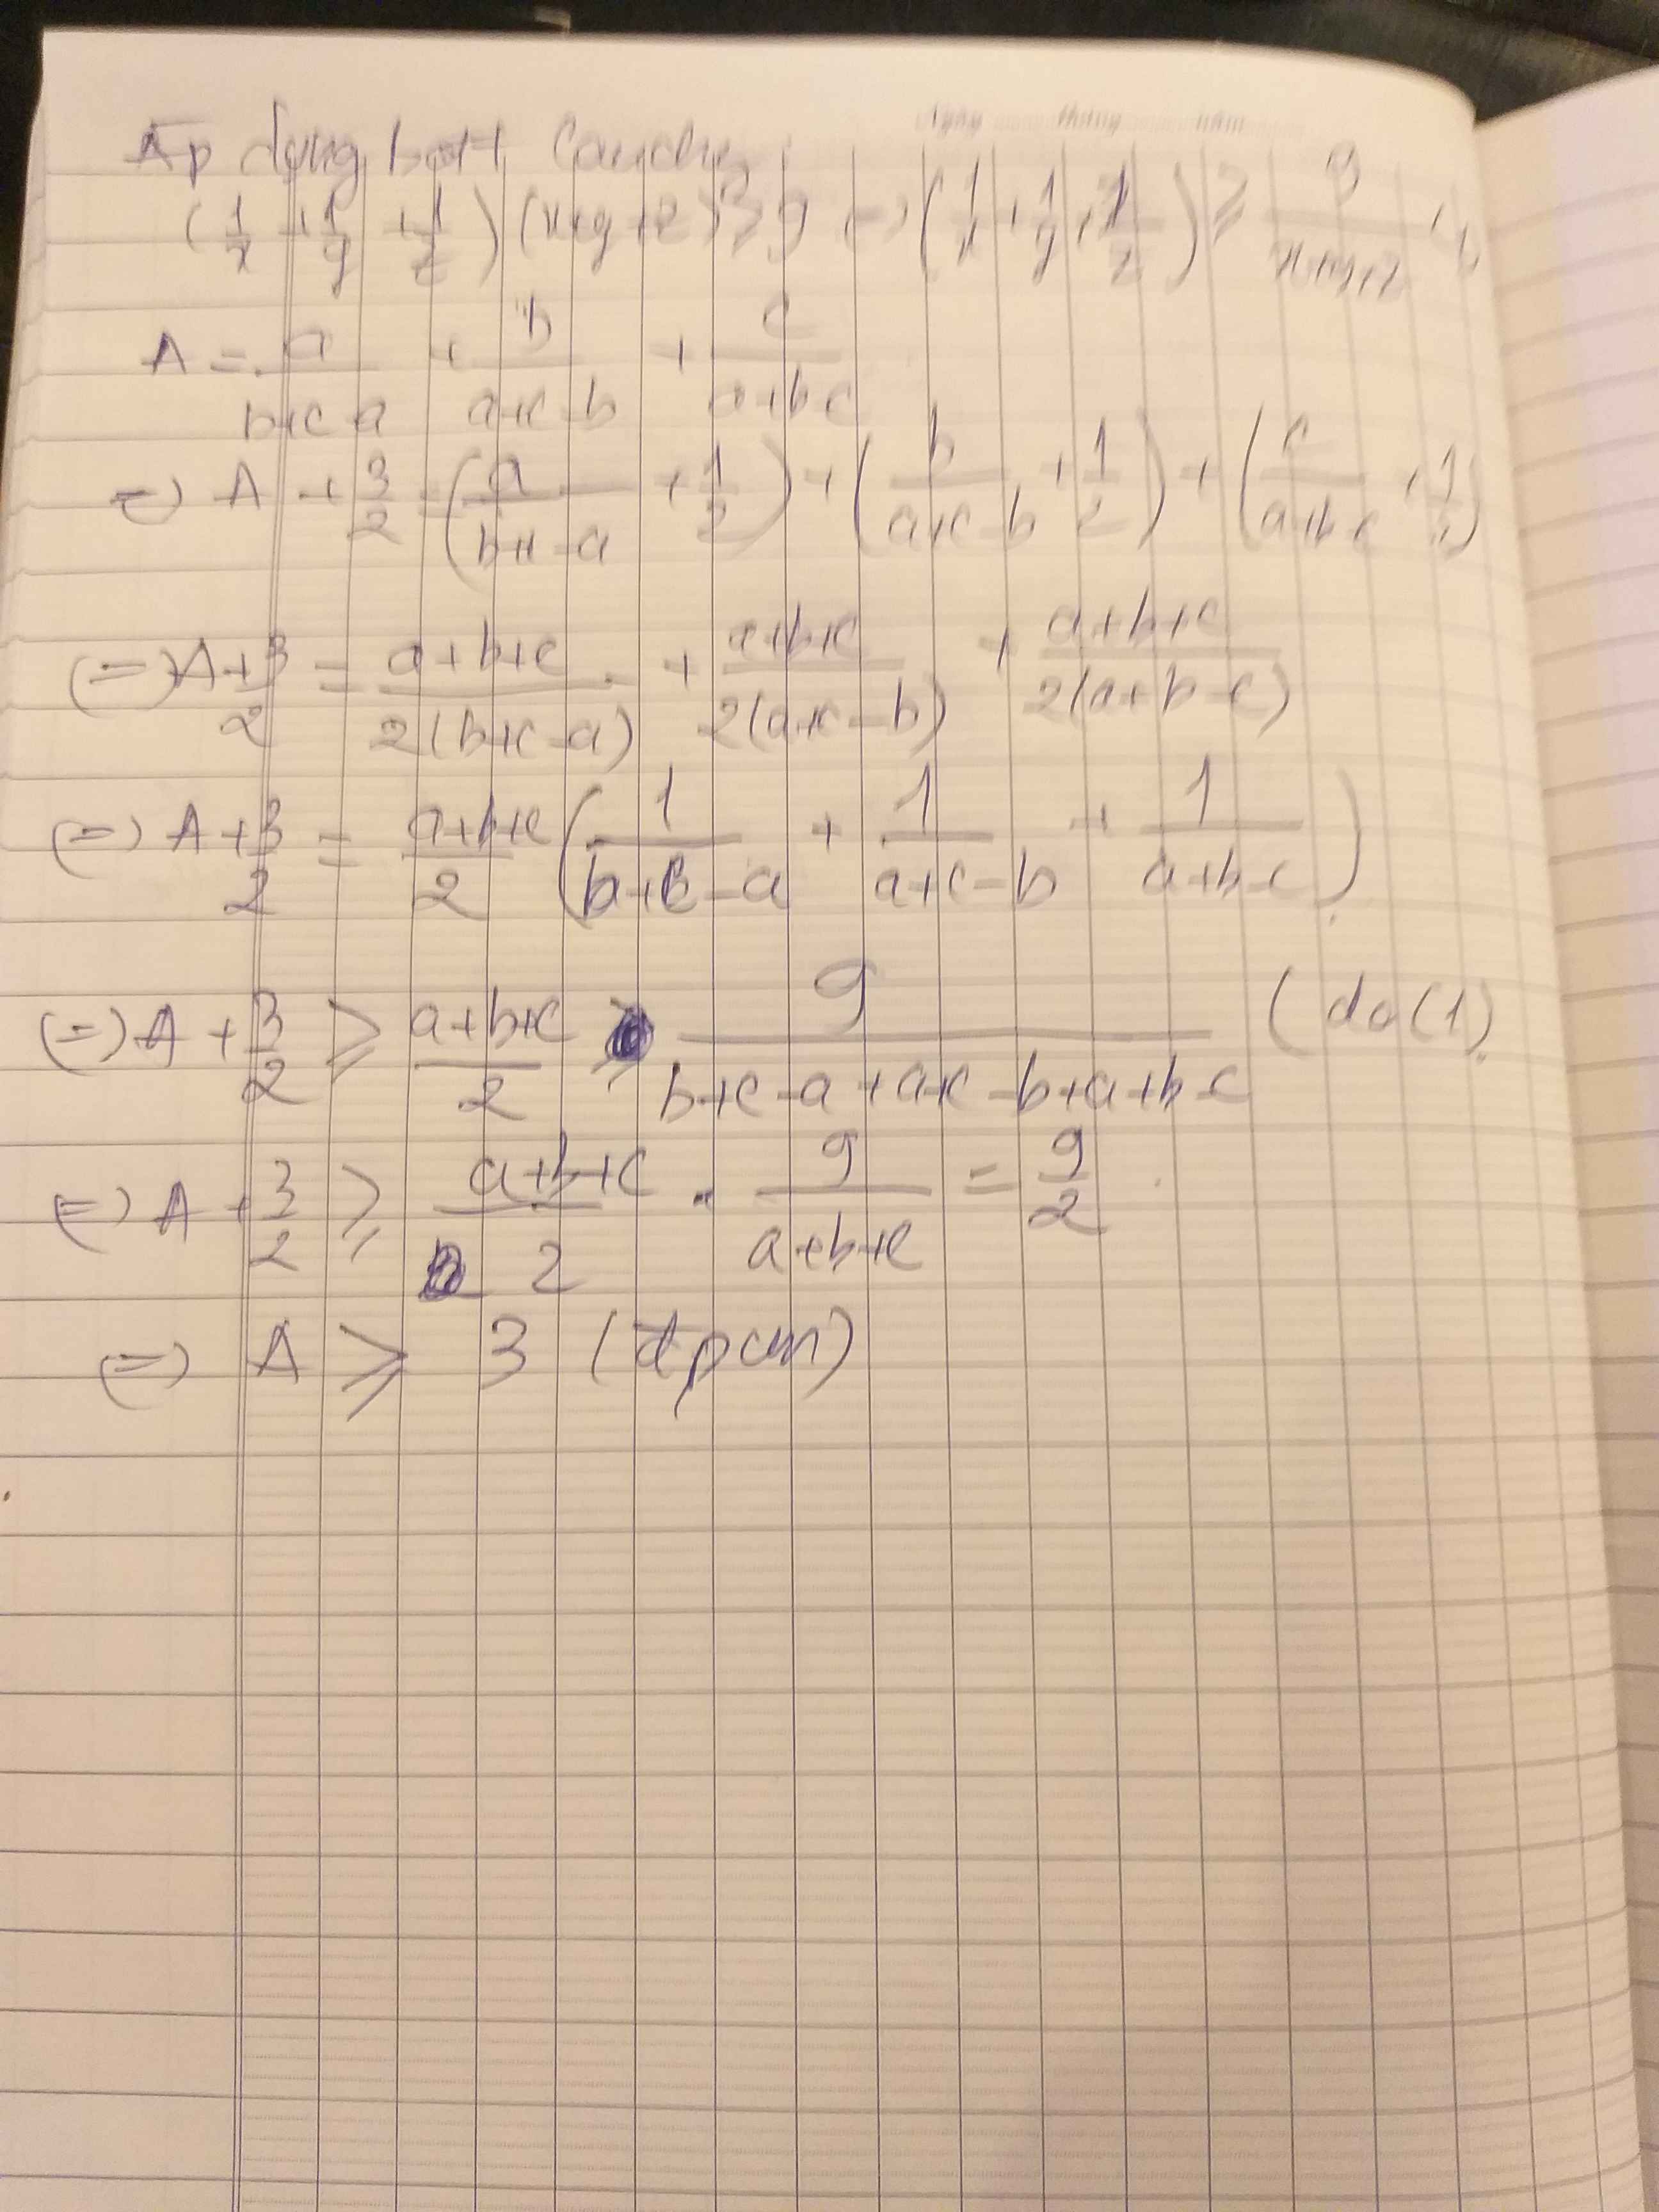 Ngày tháng năm
Áp dụng bđt Cauchy
(1/x + 1/y + 1/z)(x+y+z) ≥ 9 (=) (1/x + 1/y + 1/z) ≥ 9/(x+y+z)
A = a/(b+c-a) + b/(a+c-b) + c/(a+b-c)
=) A + 3/2 = (a/(b+c-a) + 1/2) + (b/(a+c-b) + 1/2) + (c/(a+b-c) + 1/2)
(=) A + 3/2 = (a+b+c)/(2(b+c-a)) + (a+b+c)/(2(a+c-b)) + (a+b+c)/(2(a+b-c))
(=) A + 3/2 = (a+b+c)/2 (1/(b+c-a) + 1/(a+c-b) + 1/(a+b-c))
(=) A + 3/2 ≥ (a+b+c)/2 . 9/(b+c-a+a+c-b+a+b-c) (do(1)
(=) A + 3/2 ≥ (a+b+c)/2 . 9/(a+b+c) = 9/2
(=) A ≥ 3 (đpcm)